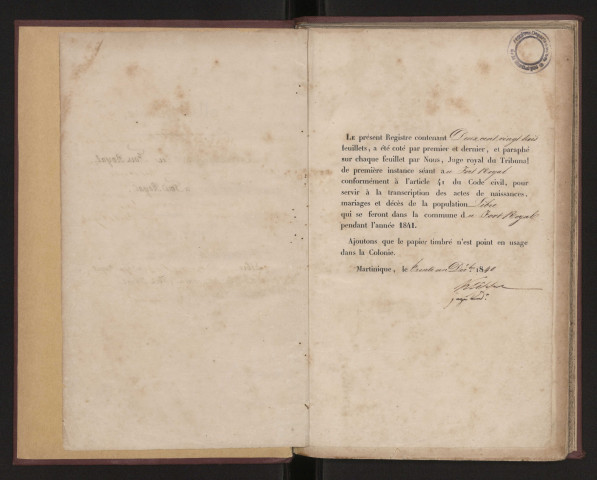 Le présent Registre contenant Deux cent vingt
feuillets, a été coté par premier et dernier, et paraphé
sur chaque feuillet par Nous, Juge royal du Tribunal
de première instance séant au Fort Royal
conformément à l'article 41 du Code civil, pour
servir à la transcription des actes de naissances,
mariages et décès de la population Libre
qui se feront dans la commune du Fort Royal
pendant l'année 1841.
Ajoutons que le papier timbré n'est point en usage
dans la Colonie.
Martinique, le trente un Déc.bre 1840